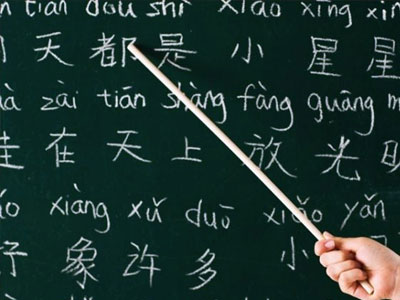 tiān dōu shì xiǎo xīng xīn
天都是小星星
uà zài tiān shàng fàng guāng m
在天上放光明
ǎo xiàng xǔ duō xiǎo yǎn
好象许多小